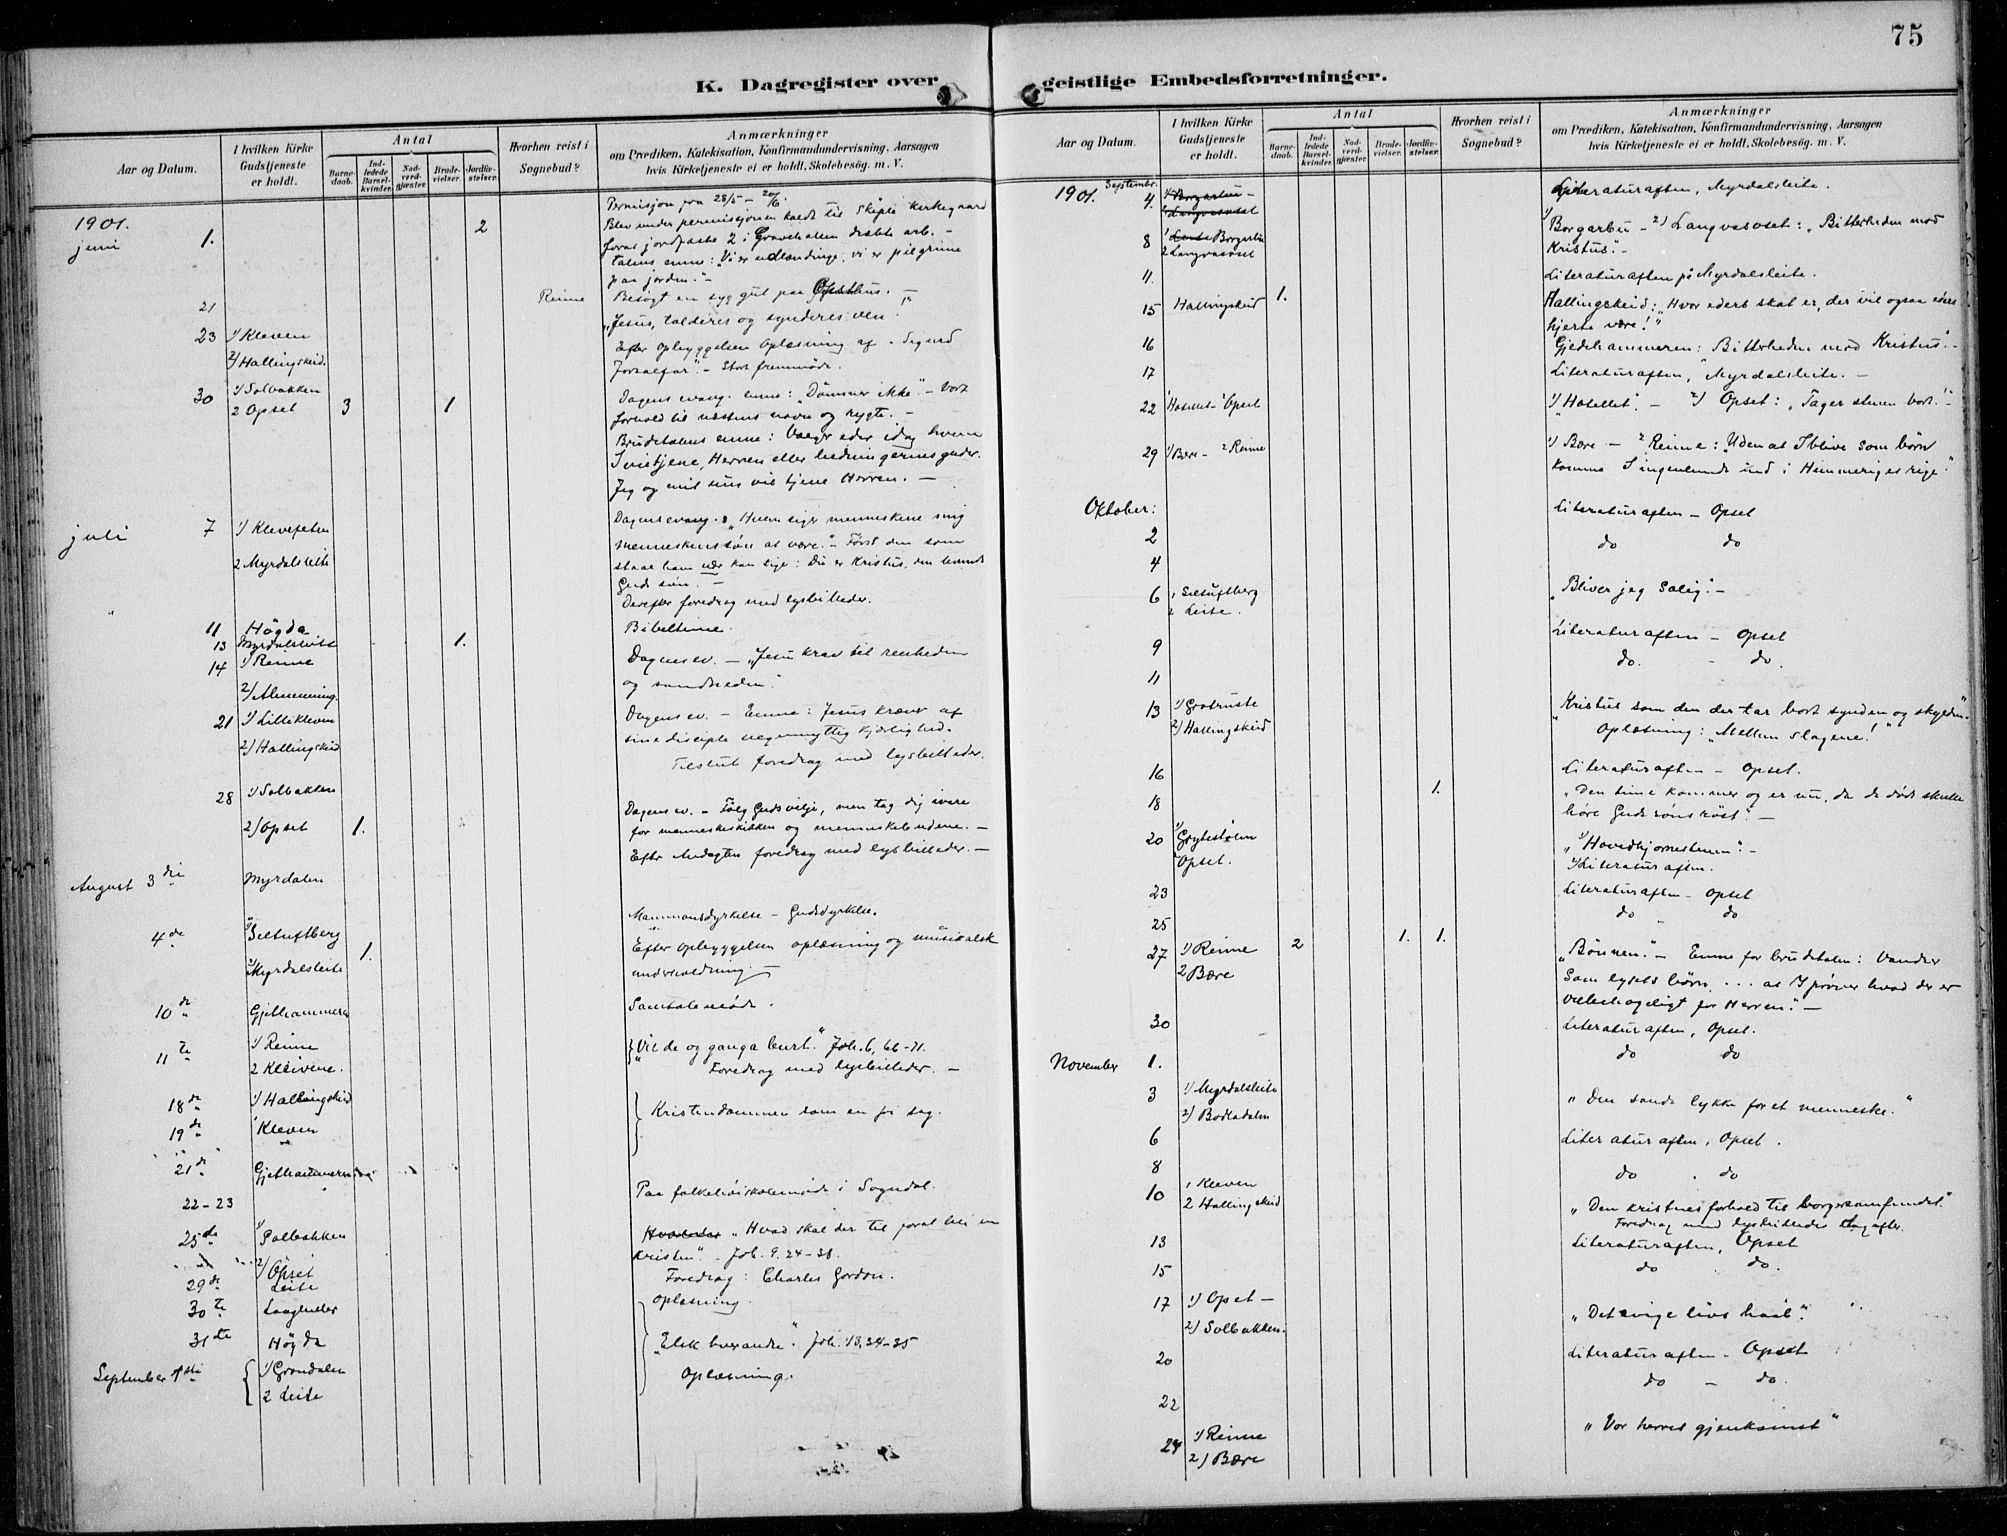 75
K. Dagregister over geistlige Embedsforretninger.
Aar og Datum.
I hvilken Kirke Gudstjeneste er holdt.
Antal
Barnedaab.
Indledede Barselkvinder.
Nadverdgjæster.
Brudevielser.
Jordfæstelser.
Hvorhen reist i Sognebud?
Anmærkninger
om Prædiken, Katekisation, Konfirmandundervisning, Aarsagen
hvis Kirketjeneste ei er holdt, Skolebesög. m. V.
1901.
juni 1. 2
Blev under permisjonen kaldt til Skiple kirkegaard
for at jordfæste 2 i Gravehalsen dræbte arb. –
talens emne: "Vi er udlændinge, vi er pilgrime
paa jorden." –
21 Reinne Besøgt en syg gut paa Opsethus. –
23 1) Kleven "Jesus, tolderes og synderes ven."
2) Hallingskeid. Efter opbyggelsen oplæsning af "Sigurd
Jorsalfar". – Stort fremmøde.
30 1) Solbakken Dagens evang. emne: "Dømmer ikke". – Vort
2 Opset 3 1 forhold til næstens navn og rygte. –
Brudetalens emne: Vælg eder idag hvem
I vil tjene, Herren eller hedningernes guder.
Jeg og mit hus vil tjene Herren. –
juli 7 1) Klevesetra Dagens evang.: "Hvem siger menneskene mig
menneskens søn at være." – Først den som
2 Myrdalsleite staar ham nær kan sige: Du er Kristus, den levende
Guds søn. –
Derefter foredrag med lysbilleder.
11 Høgda Bibeltime.
13 Myrdalsleite 1.
14 1) Renne Dagens ev. – "Jesu krav til renheden
2) Almenning. og sandheden."
21 1) Lillekleven Dagens ev. – Emne: Jesus kræver af
2) Hallingskeid sine disciple uegennyttig kjærlighed.
Tilslut foredrag med lysbilleder.
28 1) Solbakken Dagens ev. – Følg Guds vilje, men tag dig ivare
2) Opset 1. for menneskeskikken og menneskebudene. –
Efter Andagten foredrag med lysbilleder. –
August 3die Myrdalen
4de 1) Seltuftberg Mammonsdyrkelse – Gudsdyrkelse.
2) Myrdalsleite 1. Efter opbyggelsen oplæsning og musikalsk
underholdning. –
10de Gjethammeren Samtalemøde.
11te 1) Renne "Vil de og ganga burt." Joh. 6, 66-71.
2 Kleivene. Foredrag med lysbilleder. –
18de 1) Hallingskeid Kristendommen som en fri sag.
19de Kleven
21de Gjethammeren
22-23 Paa folkehøiskolemøde i Sogndal.
25de 1) Solbakken "Hvad skal der til forat bli en
kristen". – Joh. 9. 24-38.
2) Opset Foredrag: Charles Gordon.
29de Leite
30te Oplæsning.
31te Høgda "Elsk hverandre". Joh. 13, 34-35
September 1ste 1) Grøndalen Oplæsning.
2 Leite
Aar og Datum.
I hvilken Kirke Gudstjeneste er holdt.
Antal
Barnedaab.
Indledede Barselkvinder.
Nadverdgjæster.
Brudevielser.
Jordfæstelser.
Hvorhen reist i Sognebud?
Anmærkninger
om Prædiken, Katekisation, Konfirmandundervisning, Aarsagen
hvis Kirketjeneste ei er holdt, Skolebesög. m. V.
1901. Septembr. 4. 1) Borgarbu – 2 Langvasoset Literaturaften, Myrdalsleite.
8 1 Leite Borgarbu 1) Borgarbu – 2) Langvasoset: "Bitterheden mod
2 Langvasoset Kristus". –
11. Literaturaften på Myrdalsleite.
15 Hallingskeid 1. Hallingskeid: "Hvor eders skat er, der vil ogsaa eders
hjerte være!"
16 Gjedehammeren: Bitterheden mod Kristus". –
17 Literaturaften, Myrdalsleite. –
22 1 Hotellet – 2 Opset 1) "Hotellet". – 2) Opset: "Tager stenen bort!" –
29 1) Bære – 2 Reinne 1) Bære – 2 Reinne: "Uden at I blive som børn
komme I ingenlunde ind i Himmeriges rige."
Oktober:
2 Literaturaften – Opset
4 do do
6 1 Seltuftberg "Bliver jeg salig". –
2 Leite.
9 Literaturaften – Opset
11 do. – do.
13 1) "Kristus som den der tar bort synden og skylden".
2) Hallingskeid Oplæsning: "Mellem slagene!"
16 Literaturaften – Opset.
18 1. "Den time kommer og er nu, da de døde skulle
høre Guds søns røst". –
20 1) Grytestølen "Hovedhjørnestenen". –
2 Opset. 2) Literaturaften.
23 Literaturaften – Opset
25 do – do
27 1) Reinne 2 1. 1. "Bønnen". – Emne for brudetalen: Vandrer
2 Bære som lysets børn, ... at I prøver hvad der er
velbehageligt for Herren." –
30 Literaturaften, Opset.
November 1. do do
3 1) Myrdalsleite "Den sande lykke for et menneske."
2)
6 Literaturaften, Opset.
8 do . do
10 1 Kleven "Den kristnes forhold til borgersamfundet."
2 Hallingskeid Foredrag med lysbilleder
13 Literaturaften, Opset
15 do do.
17 1) Opset – "Det evige livs haab".
2) Solbakken.
20 Literaturaften – Opset
22 do – do.
24 1) Reinne "Vor herres gjenkomst"
2) Bære